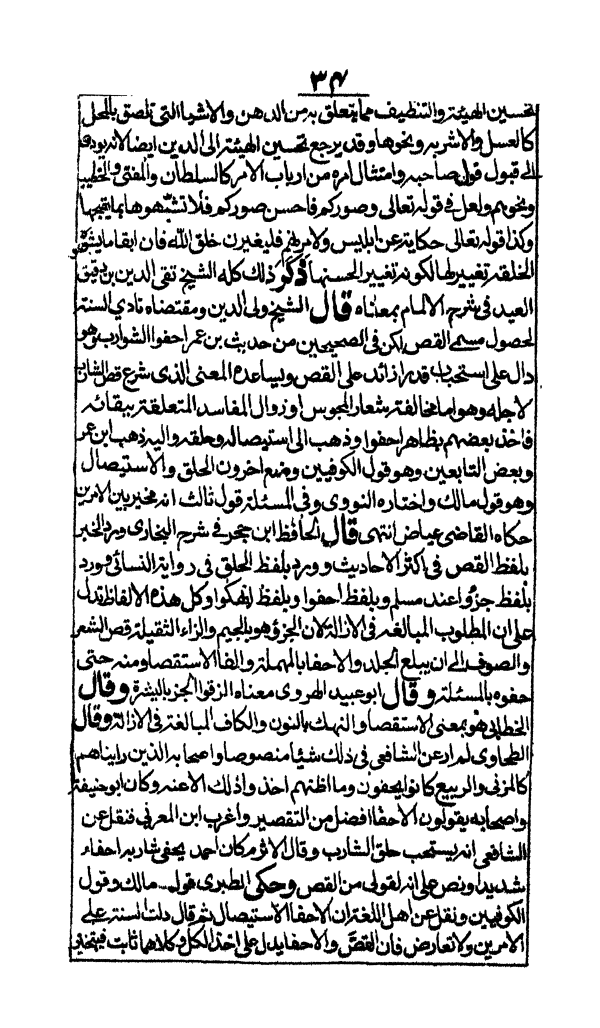 ٣٤
تحسين الهيئة والتنظيف مما يتعلق به من الدهن والاشيا التى تلصق بالمحل
كالعسل والاشربه ونحوها وقد يرجع تحسين الهيئة الى الدين ايضا لانه يودى
الى قبول قول صاحبه وامتثال امره من ارباب الامر كالسلطان والمفتى والخطيب
ونحوهم ولعل فى قوله تعالى وصوركم فاحسن صوركم فلا تشبهوها بما يقبحها
وكذا قوله تعالى حكاية عن ابليس ولامرنهم فليغيرن خلق الله فان ابقا ما يشوه
الخلقه تغيير لها لكونه تغيير الحسنها ذكر ذلك كله الشيخ تقى الدين بن دقيق
العيد فى شرح الالمام بمعناه قال الشيخ ولى الدين ومقتضاه تادى السنة
لحصول مسمى القص لكن فى الصحيحين من حديث بن عمر احفوا الشوارب وهو
دال على استحباب قدر زائد على القص ويساعده المعنى الذى شرع قص الشارب
لاجله وهو اما مخالفة شعار المجوس او زوال المفاسد المتعلقة ببقائه
فاخذ بعضهم بظاهر احفوا وذهب الى استيصاله وحلقه واليه ذهب ابن عمر
وبعض التابعين وهو قول الكوفيين ومنع اخرون الحلق والاستيصال
وهو قول مالك واختاره النووى وفى المسئلة قول ثالث انه مخير بين الامرين
حكاه القاضى عياض انتهى قال الحافظ ابن حجر فى شرح البخارى ورد الخبر
بلفظ القص فى اكثر الاحاديث وورد بلفظ الحلق فى رواية النسائى وورد
بلفظ جزوا عند مسلم وبلفظ احفوا وبلفظ انهكوا وكل هذه الالفاظ تدل
على ان المطلوب المبالغه فى الازالة لان الجز وهو بالجيم والزاء الثقيلة قص الشعر
والصوف الى ان يبلغ الجلد والاحفا بالمهملة والفا الاستقصا ومنه حتى
حفوه بالمسئلة وقال ابو عبيد الهروى معناه الزقوا الجز بالبشرة وقال
الخطابى هو بمعنى الاستقصا والنهك بالنون والكاف المبالغة فى الازالة وقال
الطحاوى لم ار عن الشافعى فى ذلك شيئا منصوصا واصحابه الذين رايناهم
كالمزنى والربيع كانوا يحفون وما اظنهم اخذوا ذلك الا عنه وكان ابو حنيفة
واصحابه يقولون الاحفا افضل من التقصير واغرب ابن العربى فنقل عن
الشافعى انه يستحب حلق الشارب وقال الاثرم كان احمد يحفى شاربه احفاء
شديدا ونص على انه اولى من القص وحكى الطبرى قول مالك وقول
الكوفيين ونقل عن اهل اللغة ان الاحفا الاستيصال ثم قال دلت السنة على
الامرين ولا تعارض فان القص والاحفا يدل على اخذ الكل وكلاهما ثابت فيتخير